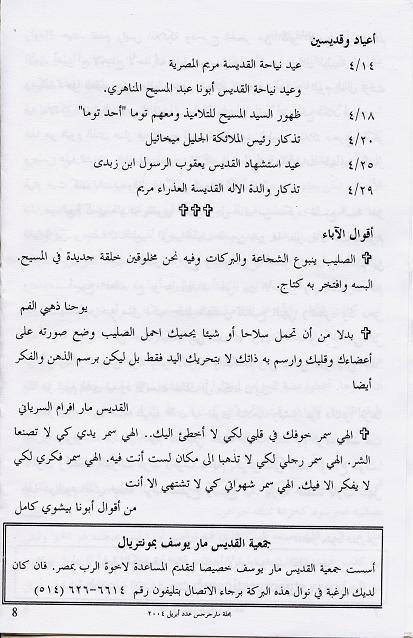 أعياد وقديسين
٤/١٤ عيد نياحة القديسة مريم المصرية
وعيد نياحة القديس أبونا عبد المسيح المناهري.
٤/١٨ ظهور السيد المسيح للتلاميذ ومعهم توما "أحد توما"
٤/٢٠ تذكار رئيس الملائكة الجليل ميخائيل
٤/٢٥ عيد استشهاد القديس يعقوب الرسول ابن زبدى
٤/٢٩ تذكار والدة الاله القديسة العذراء مريم
✞ ✞ ✞
أقوال الآباء
✞ الصليب ينبوع الشجاعة والبركات وفيه نحن مخلوقين خلقة جديدة في المسيح.
البسه وافتخر به كتاج.
يوحنا ذهبي الفم
✞ بدلا من أن تحمل سلاحا أو شيئا يحميك احمل الصليب وضع صورته على
أعضاءك وقلبك وارسم به ذاتك لا بتحريك اليد فقط بل ليكن برسم الذهن والفكر
أيضا
القديس مار افرام السرياني
✞ الهي سمر خوفك في قلبي لكي لا أخطئ اليك.. الهي سمر يدي كي لا تصنعا
الشر. الهي سمر رجلي لكي لا تذهبا الى مكان لست أنت فيه. الهي سمر فكري لكي
لا يفكر الا فيك. الهي سمر شهواتي كي لا تشتهي الا أنت
من أقوال أبونا بيشوي كامل
جمعية القديس مار يوسف بمونتريال
أسست جمعية القديس مار يوسف خصيصا لتقديم المساعدة لاخوة الرب بمصر. فان كان
لديك الرغبة في نوال هذه البركة برجاء الاتصال بتليفون رقم ٦٦١٤-٦٢٦ (٥١٤)
مجلة مارجرجس عدد أبريل ٢٠٠٤ 8